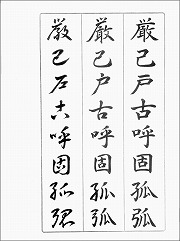 厳己戸古呼固孤弧
厳己戸古呼固孤弧
厳己戸古呼固孤弧